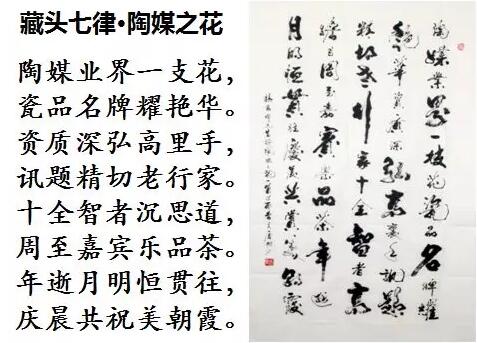 藏头七律·陶媒之花
陶媒业界一支花，
瓷品名牌耀艳华。
资质深弘高里手，
讯题精切老行家。
十全智者沉思道，
周至嘉宾乐品茶。
年逝月明恒贯往，
庆晨共祝美朝霞。
陶媒業界一枝花瓷品名牌耀
華資质深弘高里手訊題
精切老行家十全智者高
周至嘉賓品茶年逝
月明恒貫往慶晨共賞霞